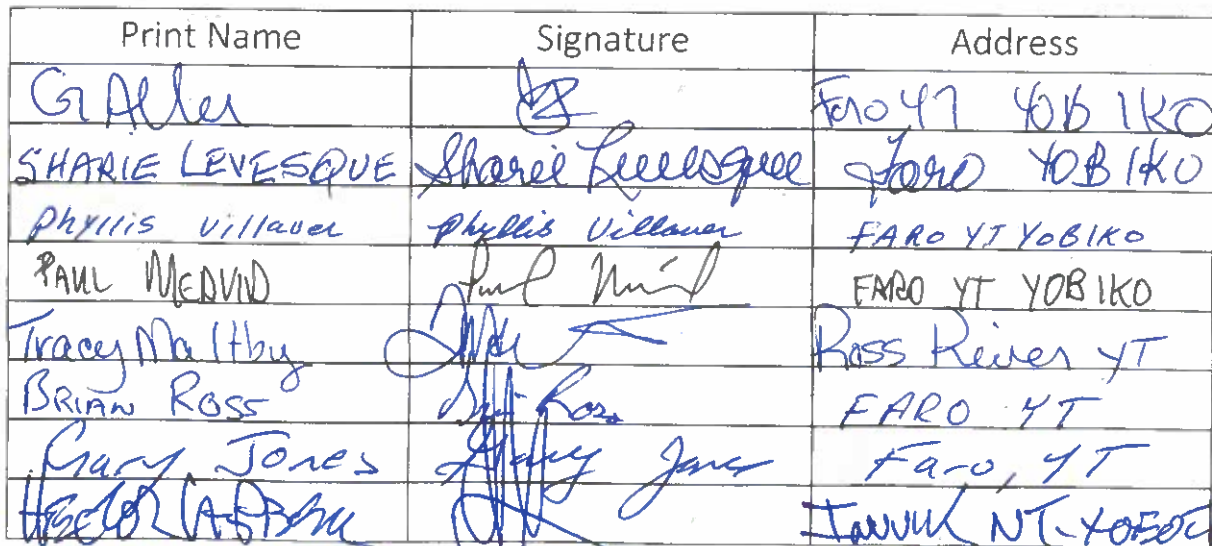 Print Name Signature Address
G Allen Faro YT YOB 1KO
SHARIE LEVESQUE Sharie Levesque Faro YOB 1KO
Phyllis Villaver Phyllis Villaver FARO YT YOB1KO
PAUL MEDVID Paul FARO YT YOB 1KO
Tracy Maltby Ross River YT
BRIAN ROSS Brian Ross FARO YT
Gary Jones Gary Jones Faro, YT
Inuvik NT